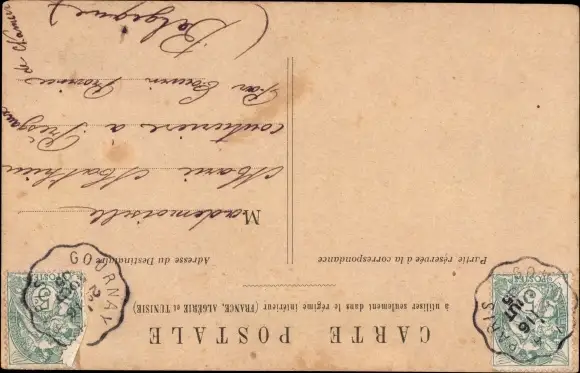 CARTE POSTALE
à utiliser seulement dans le régime intérieur (FRANCE, ALGÉRIE et TUNISIE)
Partie réservée à la correspondance
Adresse du Destinataire
Mademoiselle
Marie Mathieu
couturière à Presgaux
Par Couvin Province de Namur
(Belgique)
GOURNAY
PARIS